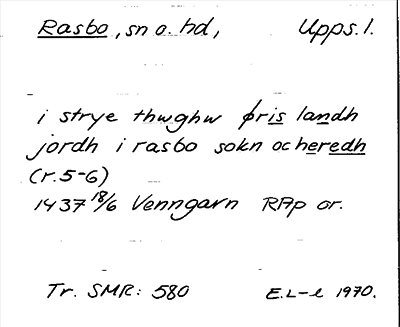 Rasbo, sn o. hd, Upps. l.
i strye thwghw øris landh
jordh i rasbo sokn och eredh
(r. 5-6)
1437 18/6 Venngarn RAp or.
Tr. SMR: 580 E.L-l 1970.